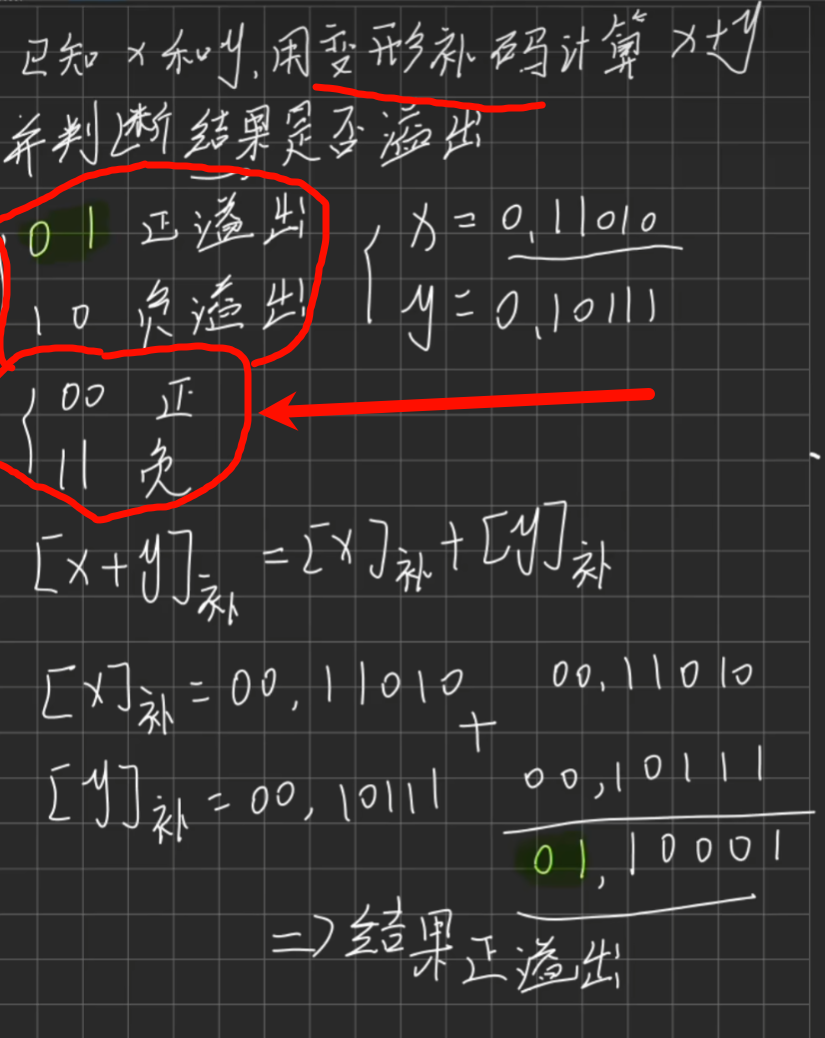 已知 x 和 y, 用变形补码计算 x+y
并判断结果是否溢出
01 正溢出
10 负溢出
x = 0,11010
y = 0,10111
00 正
11 负
[x+y]补 = [x]补 + [y]补
[x]补 = 00,11010
[y]补 = 00,10111
00,11010
+ 00,10111
01,10001
=> 结果正溢出